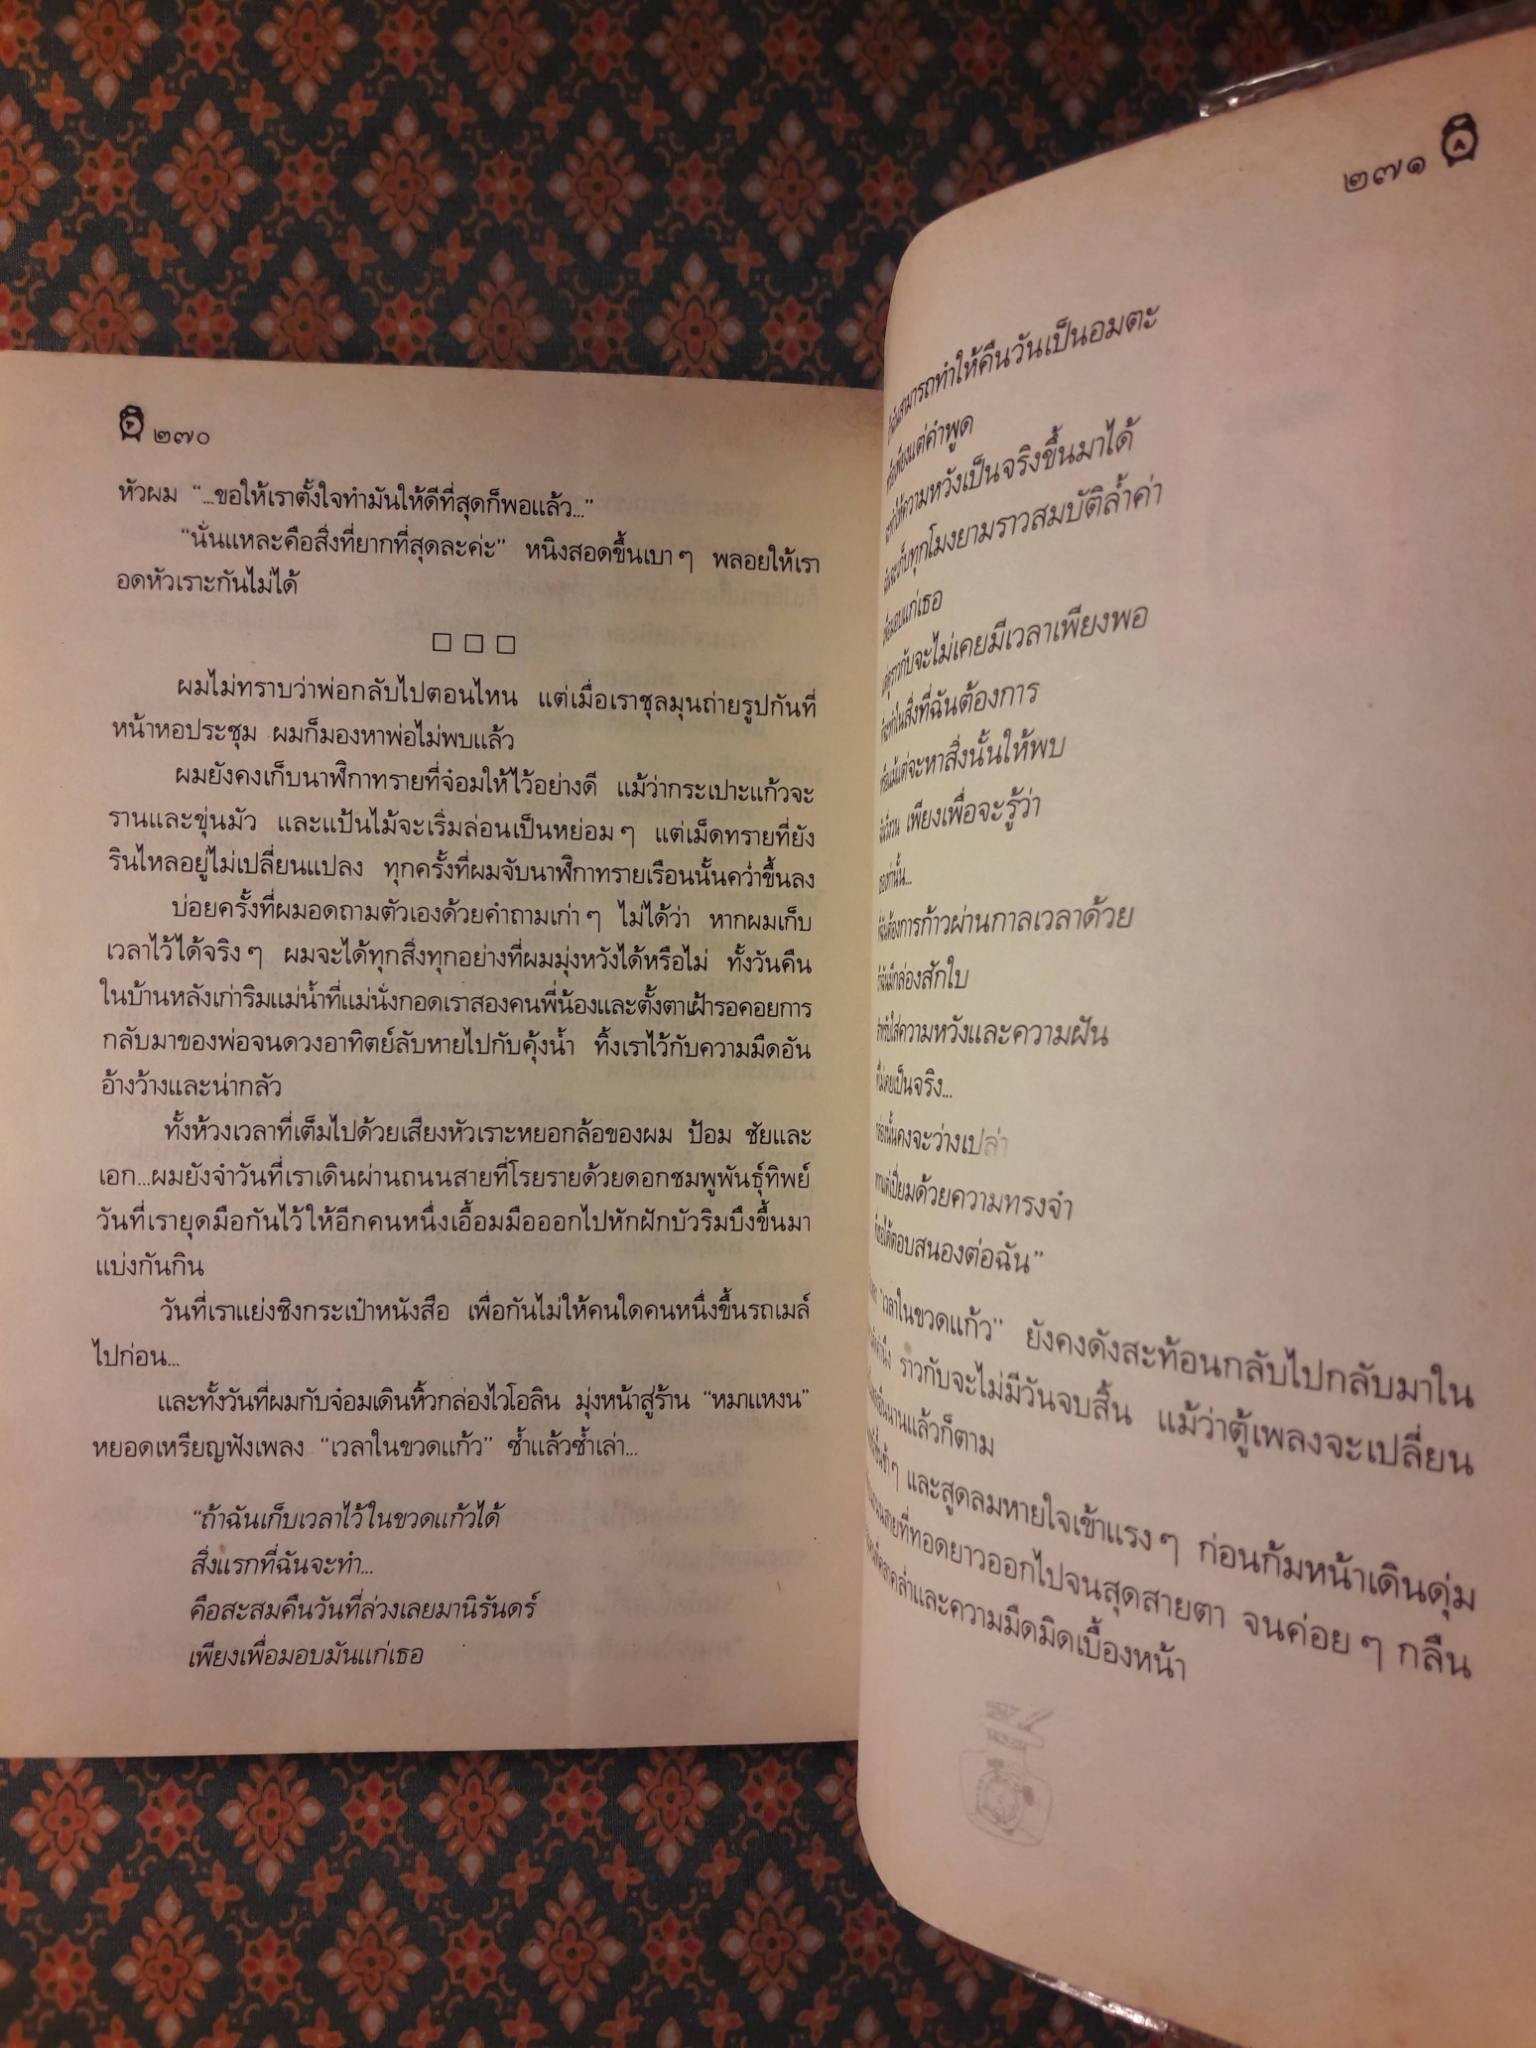 ๒๗๐
หัวผม “...ขอให้เราตั้งใจทำมันให้ดีที่สุดก็พอแล้ว...”
“นั่นแหละคือสิ่งที่ยากที่สุดละค่ะ” หนิงสอดขึ้นเบาๆ พลอยให้เรา
อดหัวเราะกันไม่ได้
□ □ □
ผมไม่ทราบว่าพ่อกลับไปตอนไหน แต่เมื่อเราชุลมุนถ่ายรูปกันที่
หน้าหอประชุม ผมก็มองหาพ่อไม่พบแล้ว
ผมยังคงเก็บนาฬิกาทรายที่จ๋อมให้ไว้อย่างดี แม้ว่ากระเปาะแก้วจะ
รานและขุ่นมัว และแป้นไม้จะเริ่มล่อนเป็นหย่อมๆ แต่เม็ดทรายที่ยัง
รินไหลอยู่ไม่เปลี่ยนแปลง ทุกครั้งที่ผมจับนาฬิกาทรายเรือนนั้นคว่ำขึ้นลง
บ่อยครั้งที่ผมอดถามตัวเองด้วยคำถามเก่าๆ ไม่ได้ว่า หากผมเก็บ
เวลาไว้ได้จริงๆ ผมจะได้ทุกสิ่งทุกอย่างที่ผมมุ่งหวังได้หรือไม่ ทั้งวันคืน
ในบ้านหลังเก่าริมแม่น้ำที่แม่นั่งกอดเราสองคนพี่น้องและตั้งตาเฝ้ารอคอยการ
กลับมาของพ่อจนดวงอาทิตย์ลับหายไปกับคุ้งน้ำ ทิ้งเราไว้กับความมืดอัน
อ้างว้างและน่ากลัว
ทั้งห้วงเวลาที่เต็มไปด้วยเสียงหัวเราะหยอกล้อของผม ป้อม ชัยและ
เอก...ผมยังจำวันที่เราเดินผ่านถนนสายที่โรยรายด้วยดอกชมพูพันธุ์ทิพย์
วันที่เรายุดมือกันไว้ให้อีกคนหนึ่งเอื้อมมือออกไปหักฝักบัวริมบึงขึ้นมา
แบ่งกันกิน
วันที่เราแย่งชิงกระเป๋าหนังสือ เพื่อกันไม่ให้คนใดคนหนึ่งขึ้นรถเมล์
ไปก่อน...
และทั้งวันที่ผมกับจ๋อมเดินหิ้วกล่องไวโอลิน มุ่งหน้าสู่ร้าน “หมาแหงน”
หยอดเหรียญฟังเพลง “เวลาในขวดแก้ว” ซ้ำแล้วซ้ำเล่า...
“ถ้าฉันเก็บเวลาไว้ในขวดแก้วได้
สิ่งแรกที่ฉันจะทำ...
คือสะสมคืนวันที่ล่วงเลยมานิรันดร์
เพียงเพื่อมอบมันแก่เธอ
๒๗๑
สามารถทำให้คืนวันเป็นอมตะ
เพียงแต่คำพูด
ความหวังเป็นจริงขึ้นมาได้
เก็บทุกโมงยามราวสมบัติล้ำค่า
มอบแก่เธอ
ราวกับจะไม่เคยมีเวลาเพียงพอ
ในสิ่งที่ฉันต้องการ
แม้แต่จะหาสิ่งนั้นให้พบ
เพียงเพื่อจะรู้ว่า
เท่านั้น...
ต้องการก้าวผ่านกาลเวลาด้วย
มีกล่องสักใบ
ใส่ความหวังและความฝัน
เป็นจริง...
คงจะว่างเปล่า
เปี่ยมด้วยความทรงจำ
ได้ตอบสนองต่อฉัน”
“เวลาในขวดแก้ว” ยังคงดังสะท้อนกลับไปกลับมาใน
ราวกับจะไม่มีวันจบสิ้น แม้ว่าตู้เพลงจะเปลี่ยน
นานแล้วก็ตาม
ช้าๆ และสูดลมหายใจเข้าแรงๆ ก่อนก้มหน้าเดินดุ่ม
สายที่ทอดยาวออกไปจนสุดสายตา จนค่อยๆ กลืน
และความมืดมิดเบื้องหน้า